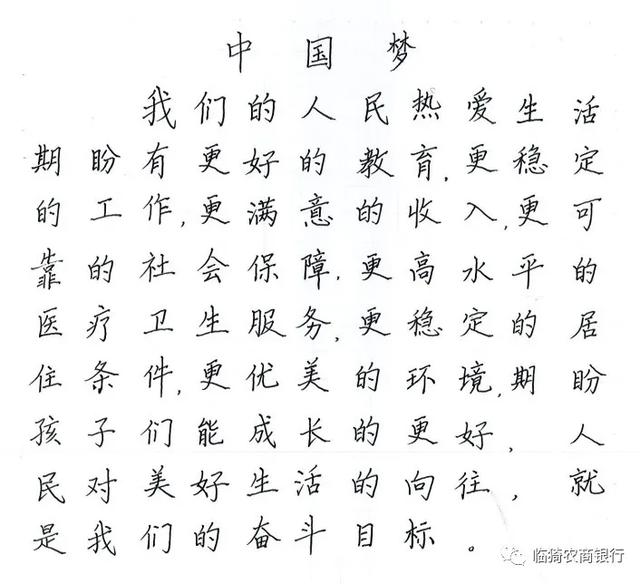 中国梦
我们的人民热爱生活
期盼有更好的教育,更稳定
的工作,更满意的收入,更可
靠的社会保障,更高水平的
医疗卫生服务,更稳定的居
住条件,更优美的环境,期盼
孩子们能成长的更好,人
民对美好生活的向往,就
是我们的奋斗目标。
临猗农商银行